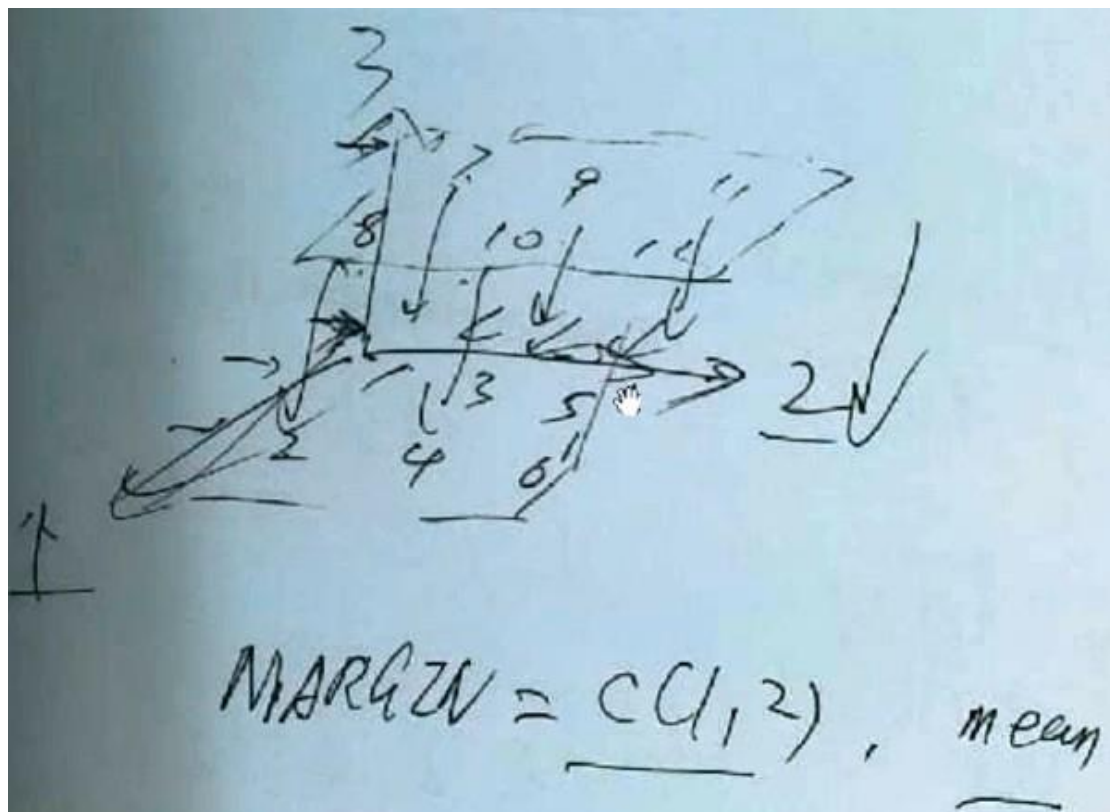 3
7 9 11
8 10 12
1 3 5
2 4 6
2
1
MARGIN = c(1,2), mean